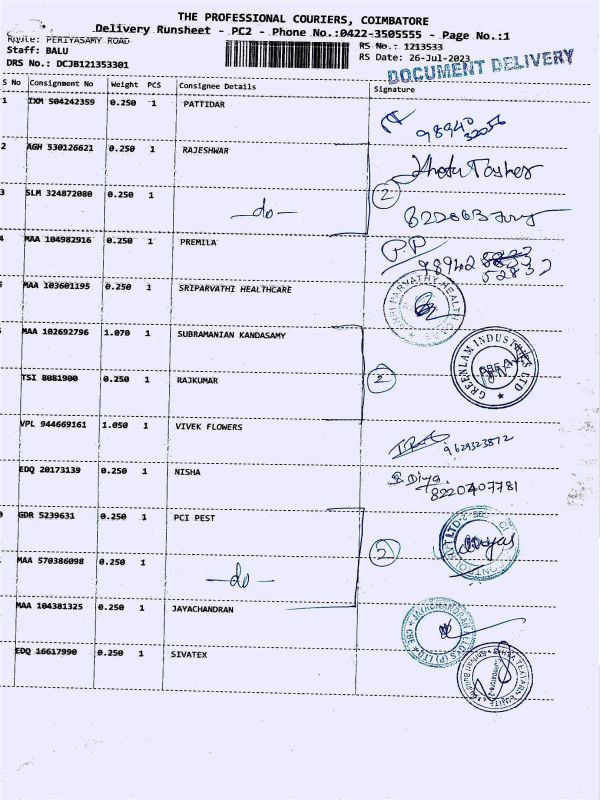 THE PROFESSIONAL COURIERS, COIMBATORE
Delivery Runsheet - PC2 - Phone No.:0422-3505555 - Page No.:1
Route: PERIYASAMY ROAD
Staff: BALU
DRS No.: DCJB121353301
RS No.: 1213533
RS Date: 26-Jul-2023
DOCUMENT DELIVERY
S No Consignment No Weight PCS Consignee Details Signature
1 IXM 504242359 0.250 1 PATTIDAR
98940 32056
2 AGH 530126621 0.250 1 RAJESHWAR
3 SLM 324872080 0.250 1
-do- 2
4 MAA 104982916 0.250 1 PREMILA P.P
98942 52832
MAA 103601195 0.250 1 SRIPARVATHI HEALTHCARE
SRI PARVATHY HEALTH
MAA 102692796 1.070 1 SUBRAMANIAN KANDASAMY
GREENLAM INDUSTRIES LTD
TSI 8081900 0.250 1 RAJKUMAR 2
VPL 944669161 1.050 1 VIVEK FLOWERS
9629323872
EDQ 20173139 0.250 1 NISHA S Diya
8220407781
GDR 5239631 0.250 1 PCI PEST
MAA 570386098 0.250 1
-do-
MAA 104381325 0.250 1 JAYACHANDRAN
EDQ 16617990 0.250 1 SIVATEX